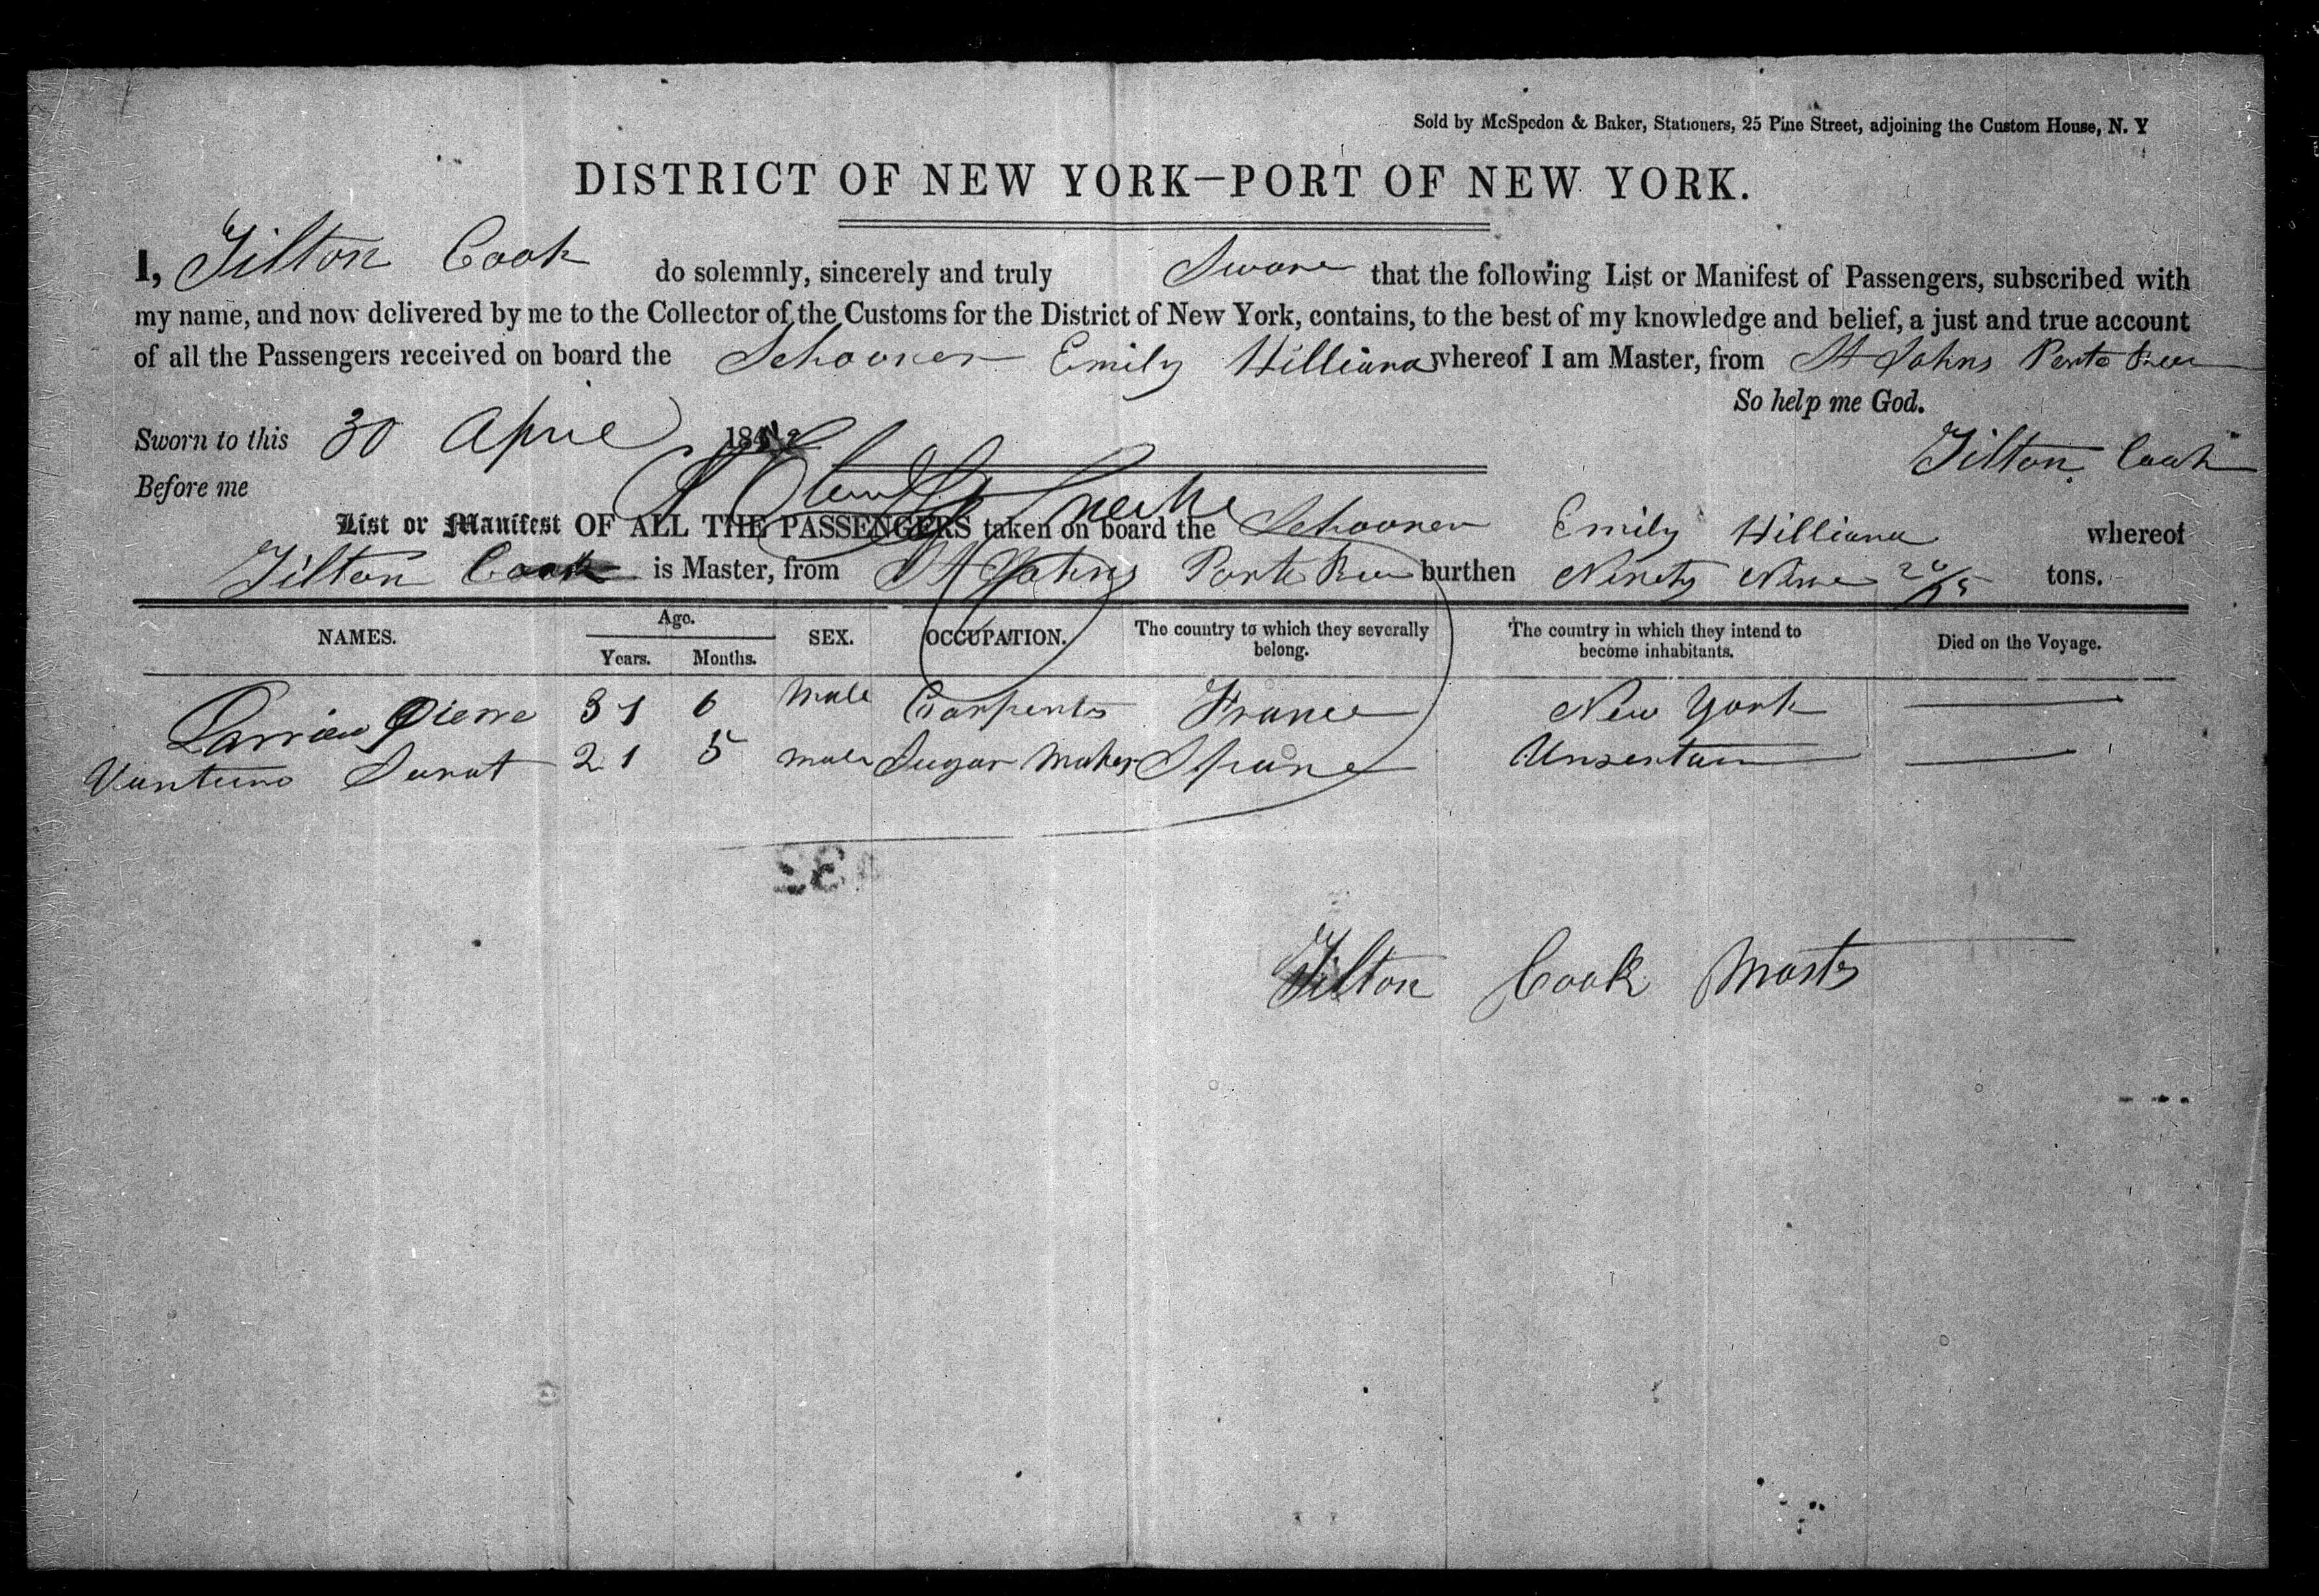 Sold by McSpedon & Baker, Stationers, 25 Pine Street, adjoining the Custom House, N. Y
DISTRICT OF NEW YORK—PORT OF NEW YORK.
I, Tilton Cook do solemnly, sincerely and truly Sware that the following List or Manifest of Passengers, subscribed with
my name, and now delivered by me to the Collector of the Customs for the District of New York, contains, to the best of my knowledge and belief, a just and true account
of all the Passengers received on board the Schooner Emily Hilliana whereof I am Master, from St Johns Porto Rico
So help me God.
Sworn to this 30 April 184
Tilton Cook
Before me
List or Manifest OF ALL THE PASSENGERS taken on board the Schooner Emily Hilliana whereof
Tilton Cook is Master, from St Johns Porto Rico burthen Ninety Nine tons.
NAMES. Age. SEX. OCCUPATION. The country to which they severally belong. The country in which they intend to become inhabitants. Died on the Voyage.
Years. Months.
Pierre 31 6 Male Carpenter France New York
21 5 male Sugar Maker Spane Unsertain
32
Tilton Cook Master